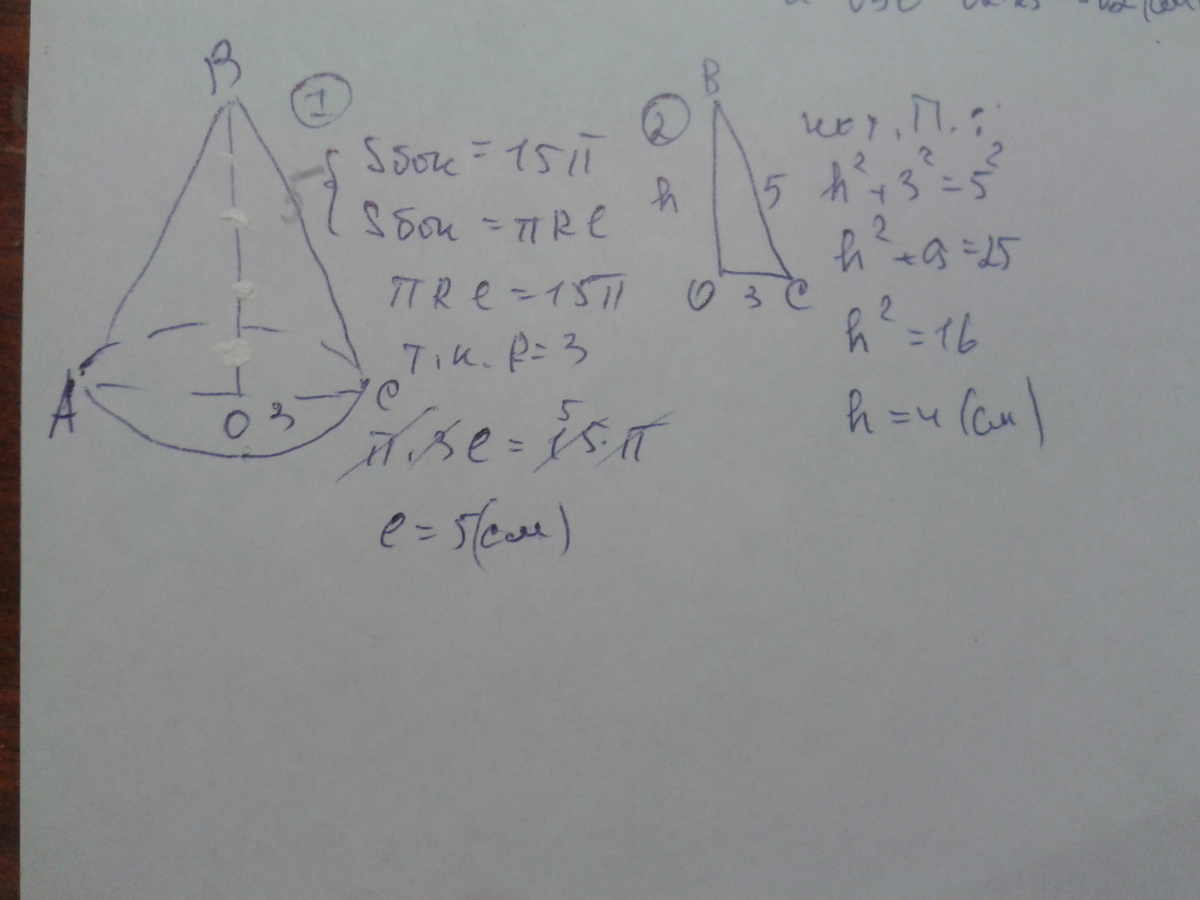 B
①
5
A
O 3
C
{ Sбок = 15π
Sбок = πRl
πRl = 15π
т.к. R = 3
π·3l = 15·π
5
l = 5(см)
②
B
h
5
O 3 C
по т. П.:
h² + 3² = 5²
h² + 9 = 25
h² = 16
h = 4 (см)